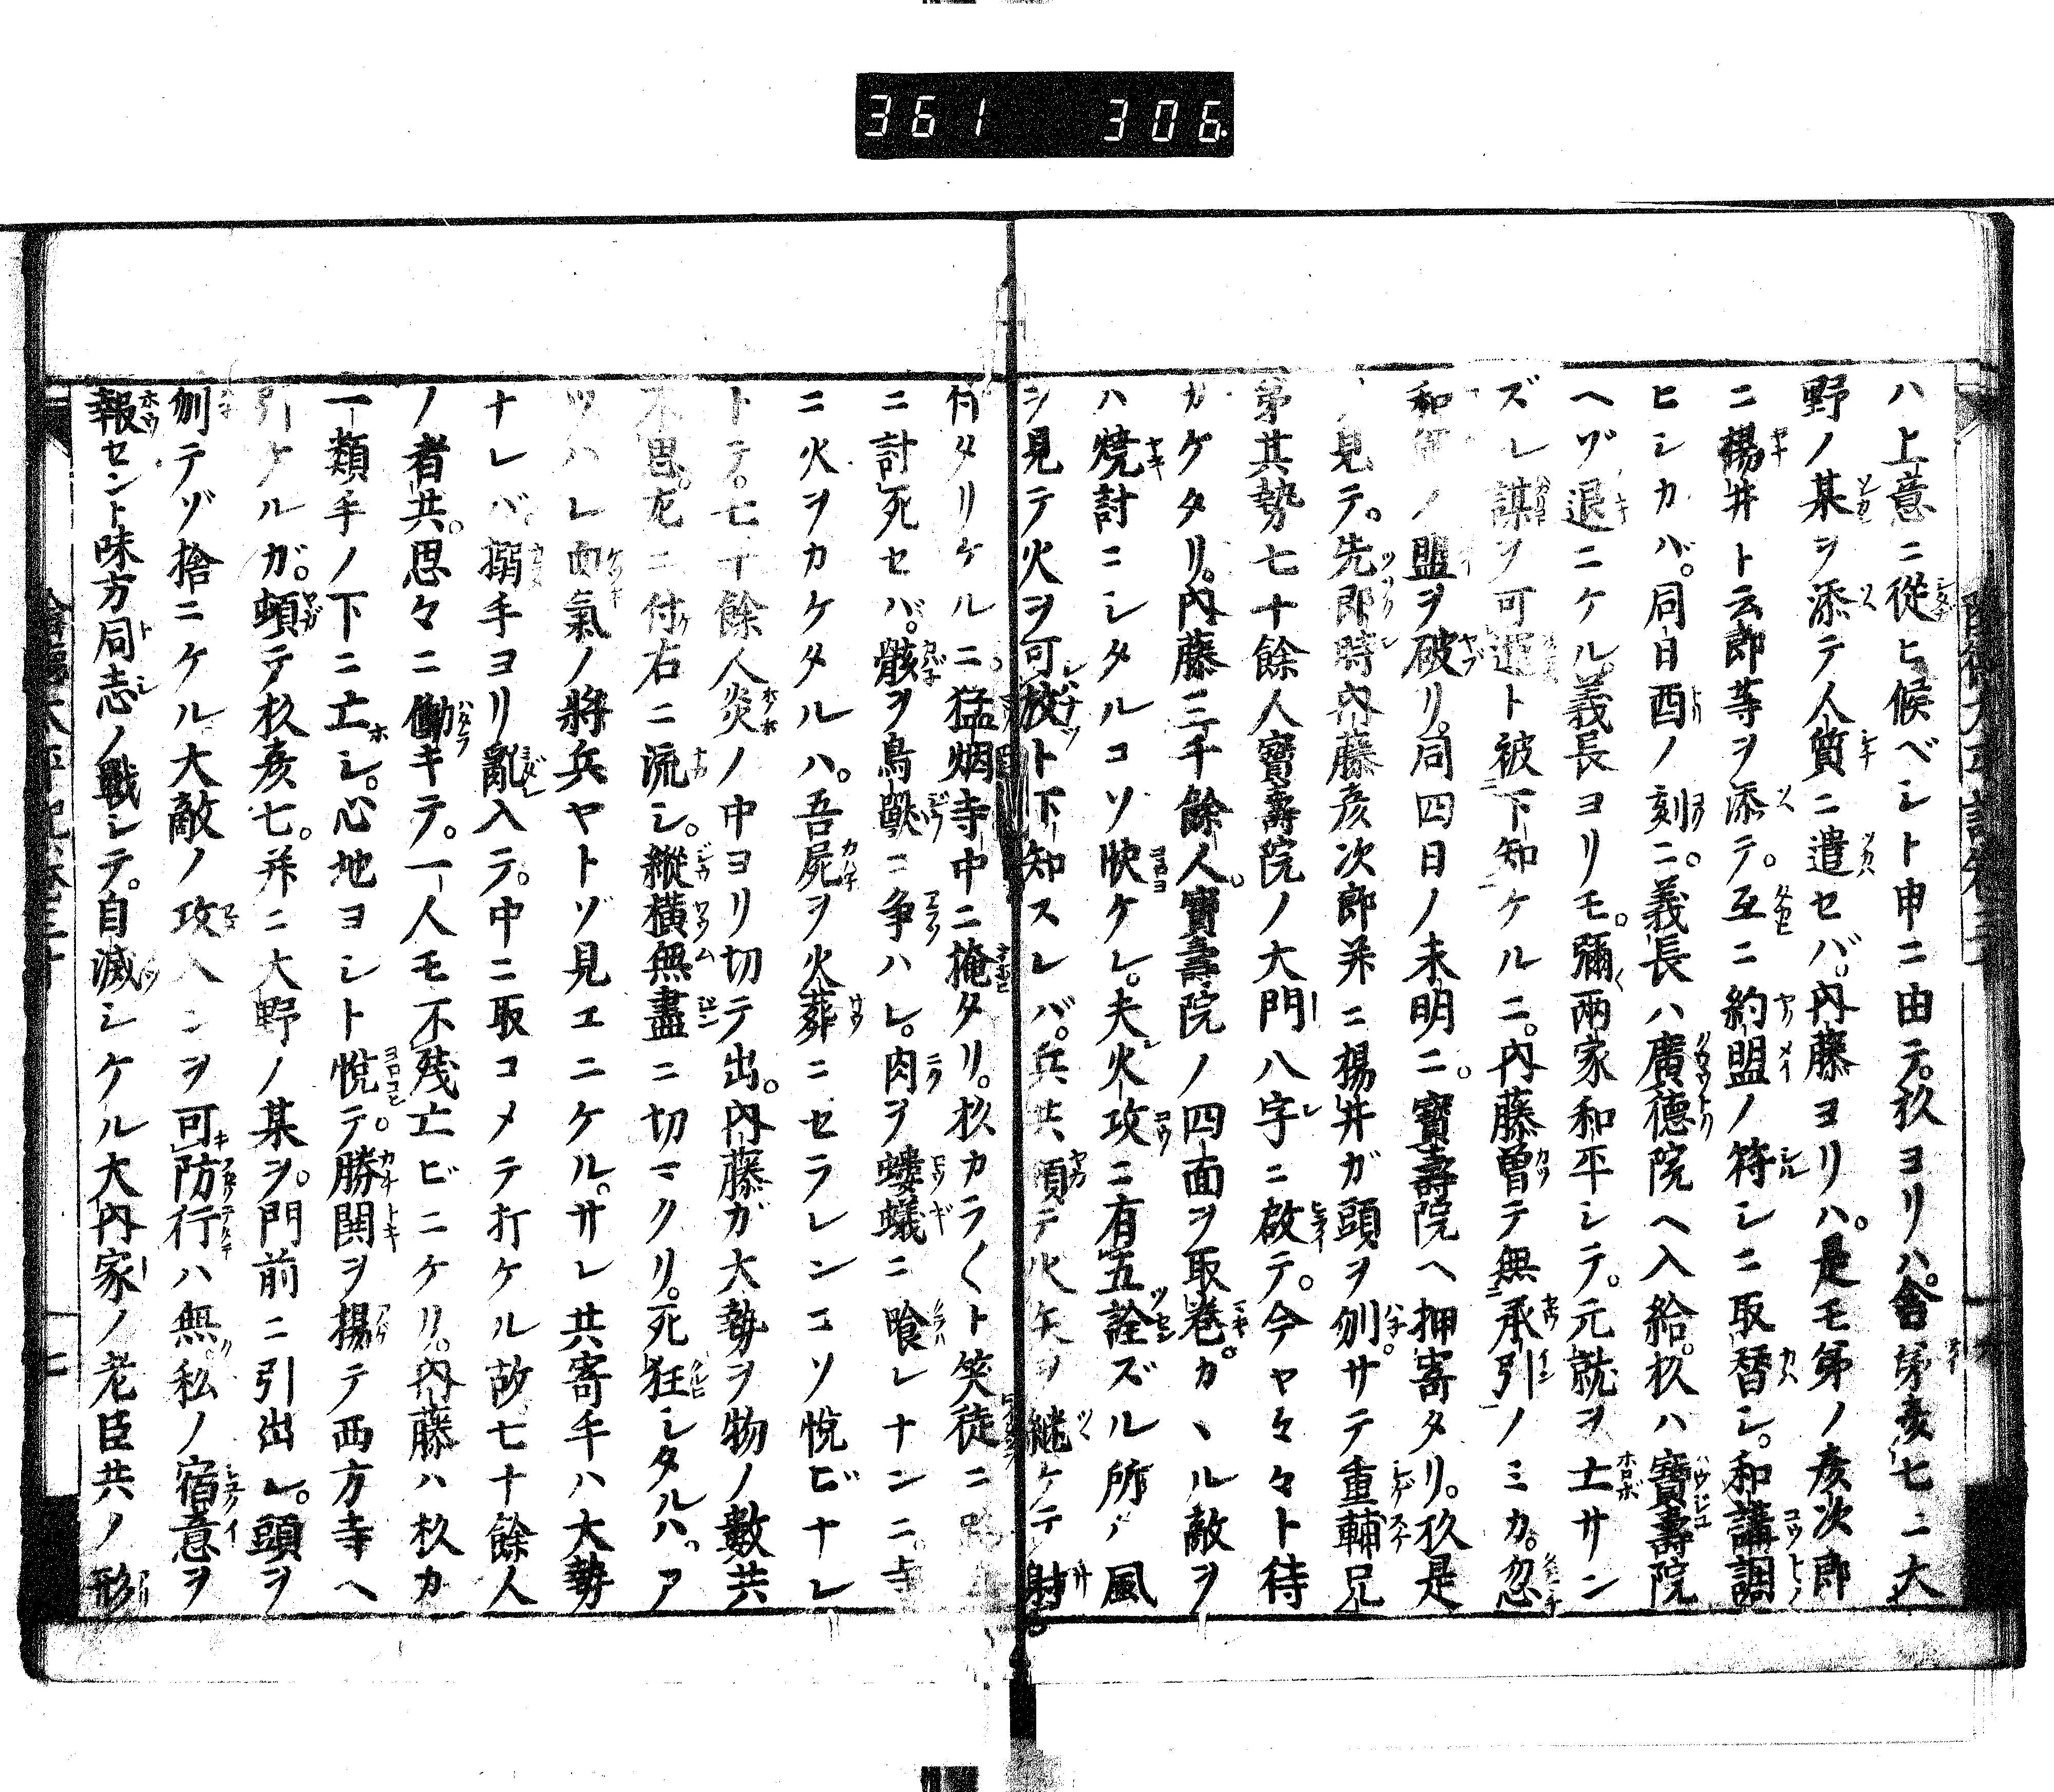 361 306
ハ上意ニ從ヒ候ベシト申ニ由テ。杦ヨリハ。舎弟彦七ニ大
野ノ某ヲ添テ人質ニ遣セバ。内藤ヨリハ。是モ弟ノ彦次郎
ニ楊井ト云郎等ヲ添テ。互ニ約盟ノ符シニ取替シ。和講調
ヒシカバ。同日酉ノ刻ニ。義長ハ廣德院ヘ入給。杦ハ寶壽院
ヘゾ退ニケル。義長ヨリモ。彌兩家和平シテ。元就ヲ亡サン
ズレ謀ヲ可運ト被下知ケルニ。内藤曽テ無承引ノミカ。忽
和ノ盟ヲ破リ。同四日ノ未明ニ。寶壽院ヘ押寄タリ。杦是
見テ。先即時内藤彦次郎并ニ楊井ガ頭ヲ刎。サテ重輔兄
弟其勢七十餘人寶壽院ノ大門八字ニ啟テ。今ヤ々々ト待
カケタリ。内藤三千餘人。寶壽院ノ四面ヲ取巻。カヽル敵ヲ
ハ焼討ニシタルコソ快ケレ。夫火攻ニ有五詮ズル所ノ風
ヲ見テ火ヲ可放ト下知スレバ。兵共頓テ火矢ヲ継ケテ射
付タリケルニ。猛烟寺中ニ掩タリ。杦カラ〳〵ト笑徒ニ
ニ討死セバ。骸ヲ鳥獣ニ争ハレ。肉ヲ螻蟻ニ喰レナンニ。寺
ニ火ヲカケタルハ。吾屍ヲ火葬ニセラレンコソ悦ビナレ
トテ。七十餘人炎ノ中ヨリ切テ出。内藤ガ大勢ヲ物ノ數共
不思。左ニ付右ニ流シ。縱橫無盡ニ切マクリ。死狂シタルハ。ア
ツハレ血氣ノ將兵ヤトゾ見エニケル。サレ共寄手ハ大勢
ナレバ。搦手ヨリ亂入テ。中ニ取コメテ打ケル故七十餘人
ノ者共。思々ニ働キテ。一人モ不残亡ビニケリ。内藤ハ杦カ
一類手ノ下ニ亡シ。心地ヨシト悦テ。勝鬨ヲ揚テ西方寺ヘ
引ケルガ。頓テ杦彦七。并ニ大野ノ某ヲ。門前ニ引出シ。頭ヲ
刎テゾ捨ニケル大敵ノ攻入ンヲ可防行ハ無。私ノ宿意ヲ
報セント味方同志ノ戰シテ。自滅シケル大内家ノ老臣共ノ形